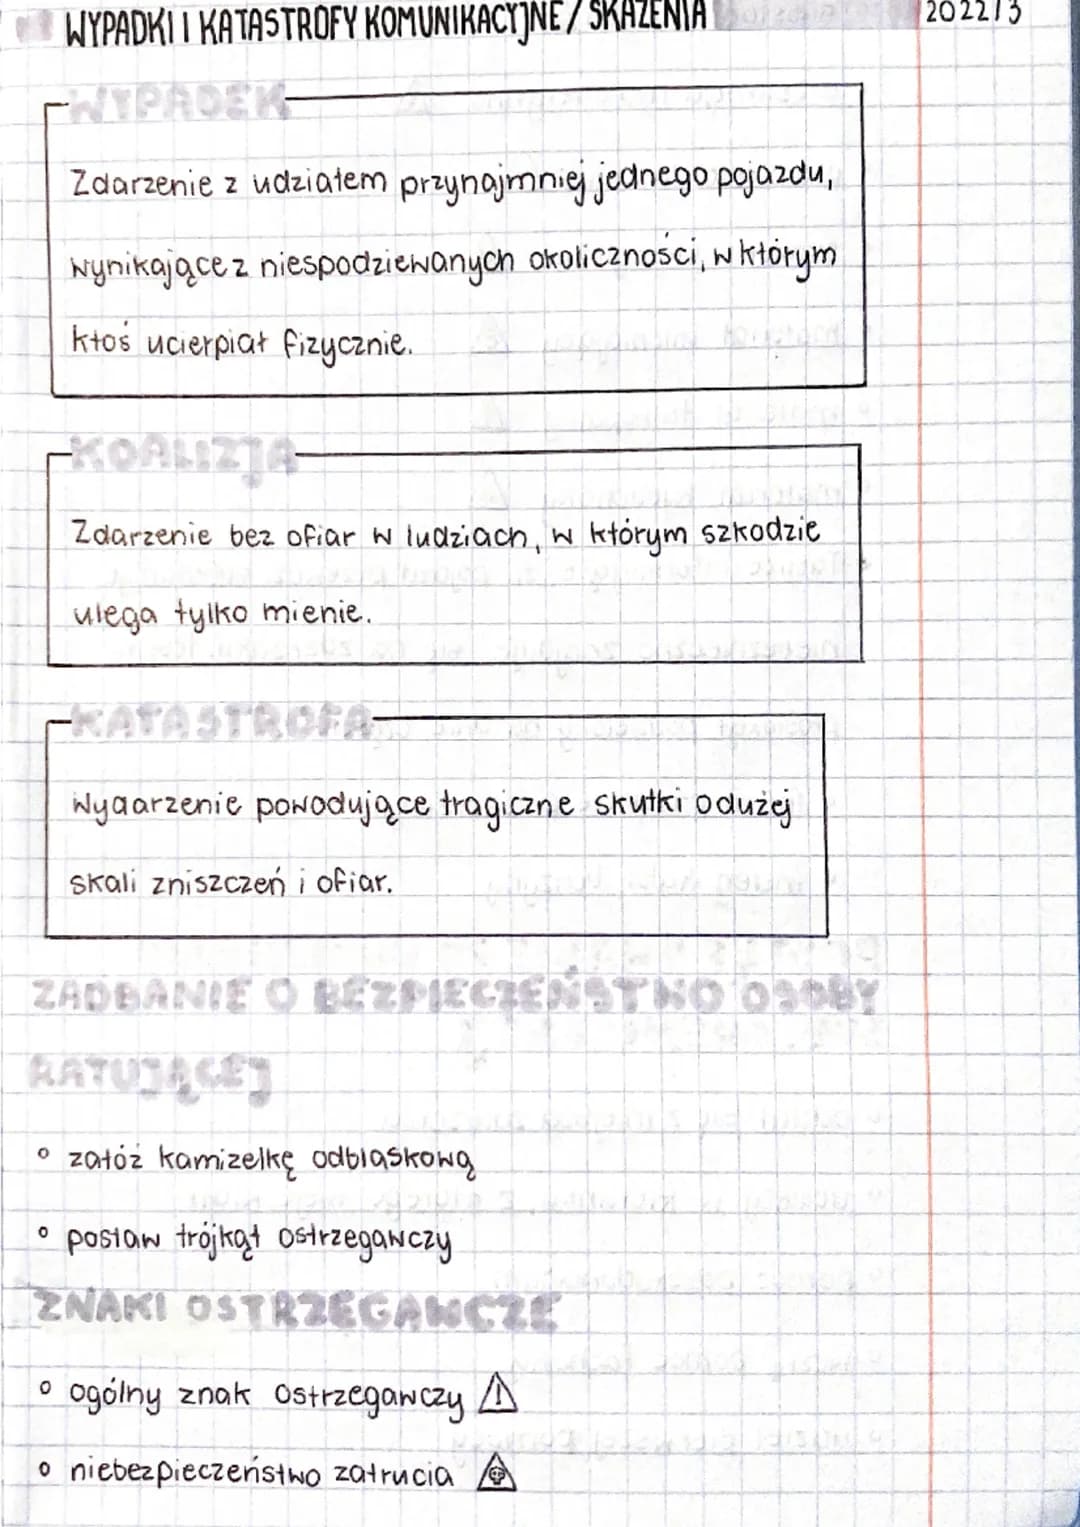 WYPADKI I KATASTROFY KOMUNIKACYJNE / SKAŻENIA 2022/3
WYPADEK
Zdarzenie z udziałem przynajmniej jednego pojazdu,
wynikające z niespodziewanych okoliczności, w którym
ktoś ucierpiał fizycznie.
KOALIZJA
Zdarzenie bez ofiar w ludziach, w którym szkodzie
ulega tylko mienie.
KATASTROFA
Wydarzenie powodujące tragiczne skutki o dużej
skali zniszczeń i ofiar.
ZADBANIE O BEZPIECZEŃSTWO OSOBY
RATUJĄCEJ
° załóż kamizelkę odblaskową
° postaw trójkąt ostrzegawczy
ZNAKI OSTRZEGAWCZE
° ogólny znak ostrzegawczy
° niebezpieczeństwo zatrucia